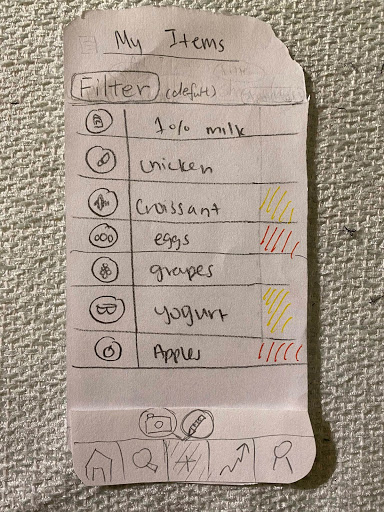 My Items
Filter (defult)
1% milk
chicken
Croissant
eggs
grapes
yogurt
Apples